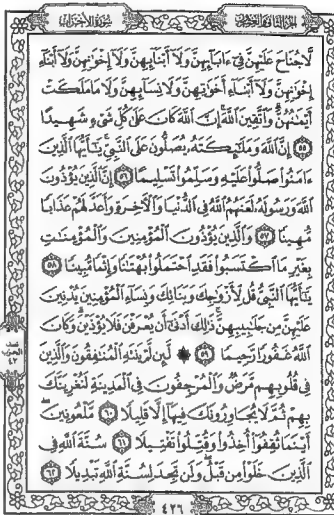 الجزء الثاني والعشرون سورة الأحزاب
لَّا جُنَاحَ عَلَيْهِنَّ فِىٓ ءَابَآئِهِنَّ وَلَآ أَبْنَآئِهِنَّ وَلَآ إِخْوَٰنِهِنَّ وَلَآ أَبْنَآءِ
إِخْوَٰنِهِنَّ وَلَآ أَبْنَآءِ أَخَوَٰتِهِنَّ وَلَا نِسَآئِهِنَّ وَلَا مَا مَلَكَتْ
أَيْمَٰنُهُنَّ وَٱتَّقِينَ ٱللَّهَ إِنَّ ٱللَّهَ كَانَ عَلَىٰ كُلِّ شَىْءٍ شَهِيدًا
٥٥ إِنَّ ٱللَّهَ وَمَلَٰٓئِكَتَهُۥ يُصَلُّونَ عَلَى ٱلنَّبِىِّ يَٰٓأَيُّهَا ٱلَّذِينَ
ءَامَنُوا۟ صَلُّوا۟ عَلَيْهِ وَسَلِّمُوا۟ تَسْلِيمًا ٥٦ إِنَّ ٱلَّذِينَ يُؤْذُونَ
ٱللَّهَ وَرَسُولَهُۥ لَعَنَهُمُ ٱللَّهُ فِى ٱلدُّنْيَا وَٱلْءَاخِرَةِ وَأَعَدَّ لَهُمْ عَذَابًا
مُّهِينًا ٥٧ وَٱلَّذِينَ يُؤْذُونَ ٱلْمُؤْمِنِينَ وَٱلْمُؤْمِنَٰتِ
بِغَيْرِ مَا ٱكْتَسَبُوا۟ فَقَدِ ٱحْتَمَلُوا۟ بُهْتَٰنًا وَإِثْمًا مُّبِينًا ٥٨
يَٰٓأَيُّهَا ٱلنَّبِىُّ قُل لِّأَزْوَٰجِكَ وَبَنَاتِكَ وَنِسَآءِ ٱلْمُؤْمِنِينَ يُدْنِينَ
عَلَيْهِنَّ مِن جَلَٰبِيبِهِنَّ ذَٰلِكَ أَدْنَىٰٓ أَن يُعْرَفْنَ فَلَا يُؤْذَيْنَ وَكَانَ
ٱللَّهُ غَفُورًا رَّحِيمًا ٥٩ ۞ لَّئِن لَّمْ يَنتَهِ ٱلْمُنَٰفِقُونَ وَٱلَّذِينَ
فِى قُلُوبِهِم مَّرَضٌ وَٱلْمُرْجِفُونَ فِى ٱلْمَدِينَةِ لَنُغْرِيَنَّكَ
بِهِمْ ثُمَّ لَا يُجَاوِرُونَكَ فِيهَآ إِلَّا قَلِيلًا ٦٠ مَّلْعُونِينَ
أَيْنَمَا ثُقِفُوٓا۟ أُخِذُوا۟ وَقُتِّلُوا۟ تَقْتِيلًا ٦١ سُنَّةَ ٱللَّهِ فِى
ٱلَّذِينَ خَلَوْا۟ مِن قَبْلُ وَلَن تَجِدَ لِسُنَّةِ ٱللَّهِ تَبْدِيلًا ٦٢
٤٢٦